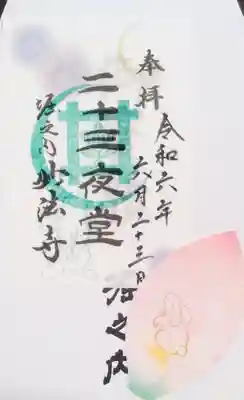 奉拝
令和六年
六月二十三日
二十三夜堂
堀之内
妙法寺
堀之内